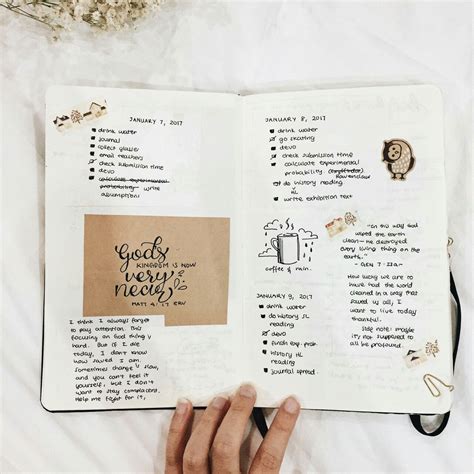 JANUARY 7, 2017
drink water
journal
collect glacier
email teachers
check submission time
devo
calculate experimental
probability write
assumptions
God's
KINGDOM IS NOW
very
near
MATT 4:17 ERV
I think I always forget
to pay attention. This
focusing on God thing is
hard. But if I die
today, I don't know
how saved I am.
Sometimes change is slow,
and you can't feel it
yourself, but I don't
want to stay complacent.
Help me fight for it,
JANUARY 8, 2017
drink water
go skating
devo
check submission time
calculate experimental
probability
do history reading
HL
write exhibition text
coffee & rain.
"on this way God
wiped the earth
clean— he destroyed
every living thing on
the earth."
- GEN 7:
How lucky we are to
have had the world
cleaned in a way that
saved us all, I
want to live today
thankful.
side note: maybe
it's not supposed to
all be profound.
JANUARY 9, 2017
drink water
do history SL
reading
devo
finish exp. prob.
do history HL
reading
journal spread